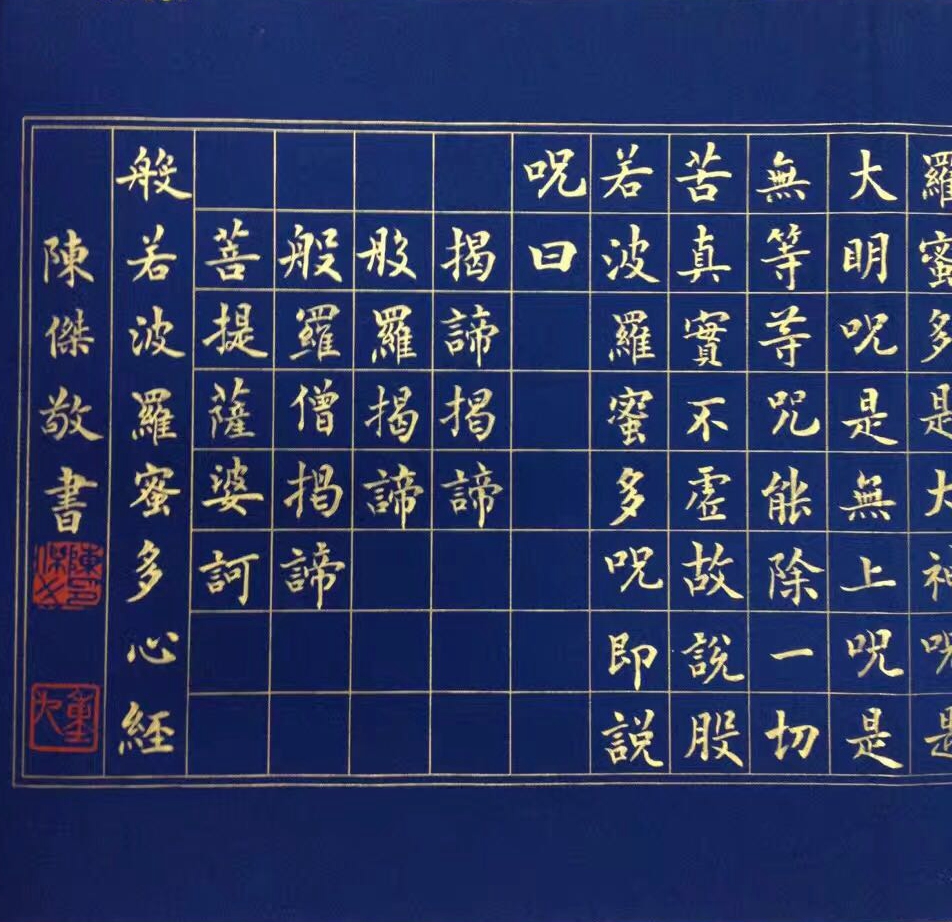 羅蜜多是大神呪是
大明呪是無上呪是
無等等呪能除一切
苦真實不虛故說般
若波羅蜜多呪即說
呪曰
揭諦揭諦
般羅揭諦
般羅僧揭諦
菩提薩婆訶
般若波羅蜜多心經
陳傑敬書